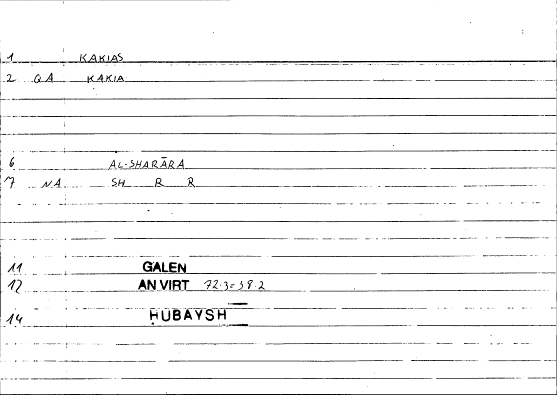 1 KAKIAS
2 QA KAKIA
6 AL-SHARĀRA
7 NA SH R R
11 GALEN
12 AN VIRT 72.3=38.2
14 ḤUBAYSH